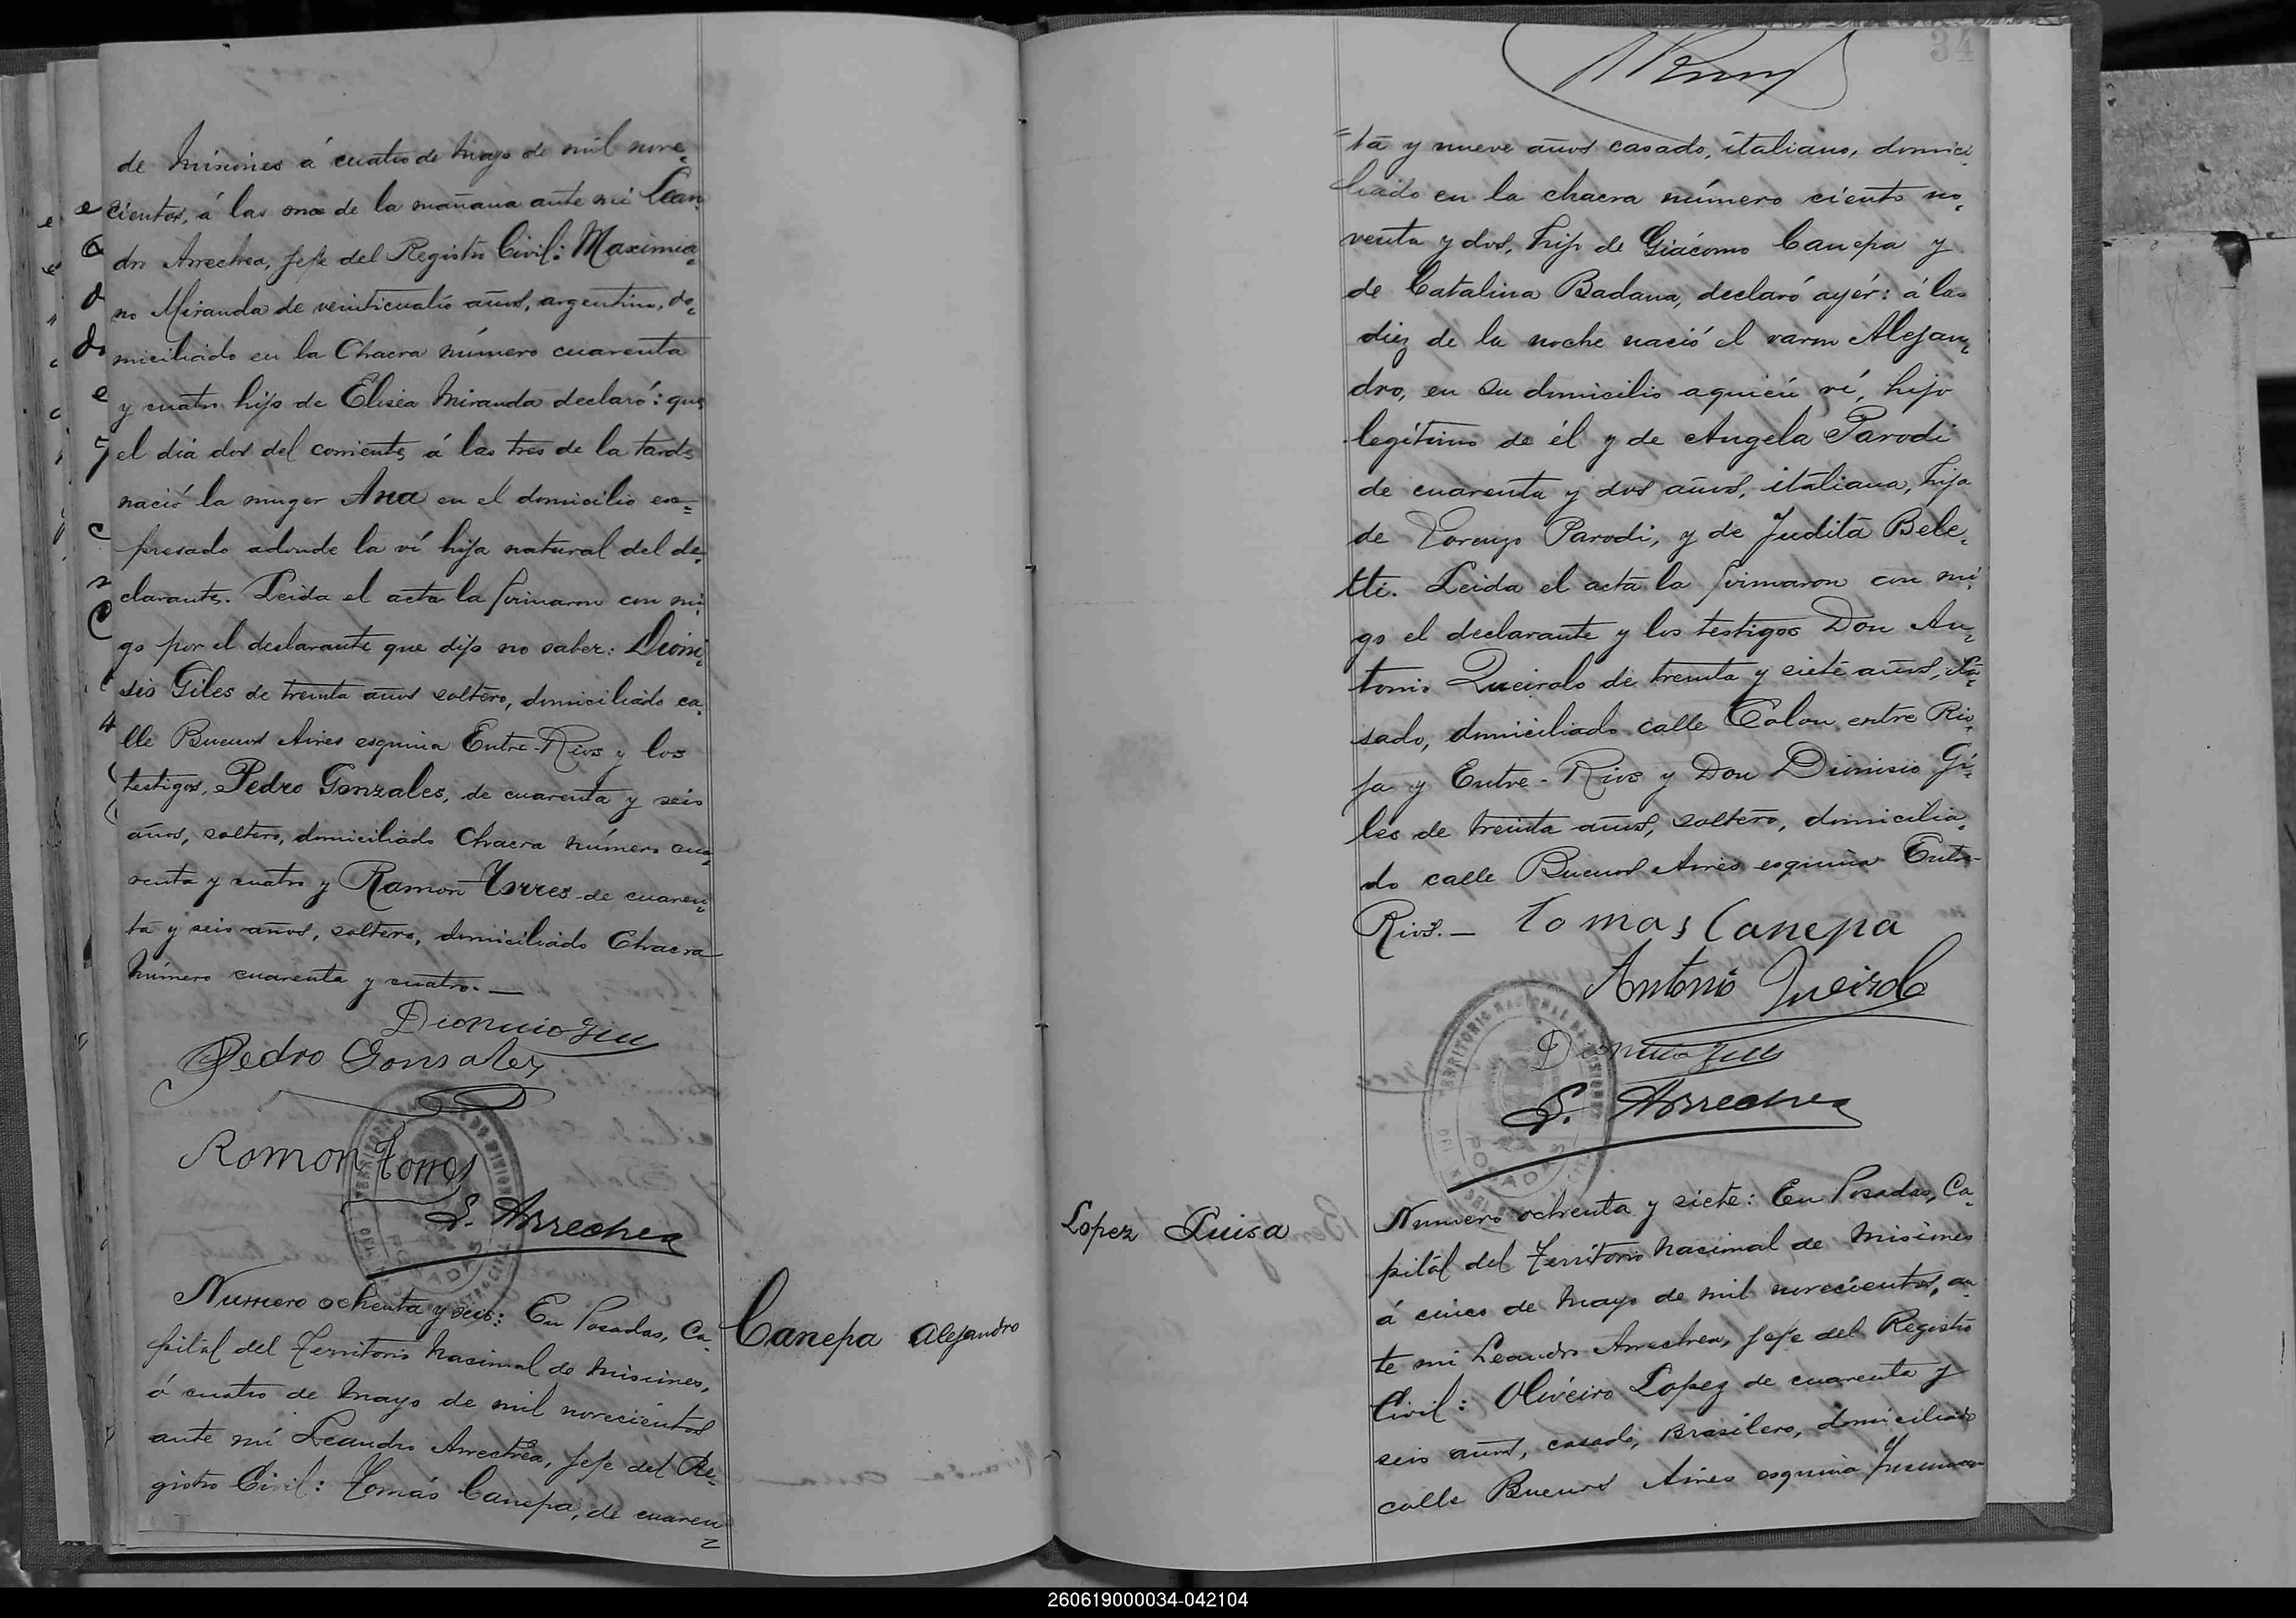 de Misiones á cuatro de Mayo de mil nove=
cientos, á las once de la mañana ante mi Lean
dro Arrechea, Jefe del Registro Civil: Maximia=
no Miranda de veinticuatro años, argentino, do=
miciliado en la Chacra número cuarenta
y cuatro hijo de Elisea Miranda declaró: que
el dia dos del corriente, á las tres de la tarde
nació la muger Ana en el domicilio es=
presado adonde la ví hija natural del de=
clarante. Leida el acta la firmaron con mi
go por el declarante que dijo no saber: Dioni=
sio Giles de treinta años soltero, domiciliado ca=
lle Buenos Aires esquina Entre-Rios y los
testigos, Pedro Gonzales, de cuarenta y seis
años, soltero, domiciliado Chacra número cua=
renta y cuatro y Ramon Torres de cuaren=
ta y seis años, soltero, domiciliado Chacra
número cuarenta y cuatro.—
Dionicio Giles
Pedro Gonsales
Ramon Torres
L. Arrechea
Numero ochenta y seis: En Posadas, Ca=
pital del Territorio Nacional de Misiones,
á cuatro de Mayo de mil novecientos
ante mí Leandro Arrechea, Jefe del Re=
gistro Civil: Tomás Canepa, de cuaren=
Canepa Alejandro
34
=ta y nueve años casado, italiano, domici=
liado en la chacra número ciento no=
venta y dos, hijo de Giácomo Canepa y
de Catalina Badana, declaró ayér: á las
diez de la noche nació el varon Alejan=
dro, en su domicilio aquién ví, hijo
legítimo de él y de Angela Parodi
de cuarenta y dos años, italiana, hija
de Lorenzo Parodi, y de Judita Bele=
tti. Leida el acta la firmaron con mi
go el declarante y los testigos Don An=
tonio Queirolo de treinta y siete años, ca=
sado, domiciliado calle Colon entre Rio=
ja y Entre-Rios y Don Dionisio Gi=
les de treinta años, soltero, domicilia=
do calle Buenos Aires esquina Entre-
Rios.— Tomas Canepa
Antonio Queirolo
Dionicio Giles
L. Arrechea
TERRITORIO NACIONAL DE MISIONES
POSADAS
Lopez Luisa
Numero ochenta y siete: En Posadas, Ca=
pital del Territorio Nacional de Misiones
á cinco de Mayo de mil novecientos, an=
te mi Leandro Arrechea, Jefe del Registro
Civil: Oliveiro Lopez de cuarenta y
seis años, casado, Brasilero, domiciliado
calle Buenos Aires esquina Tucuman
260619000034-042104